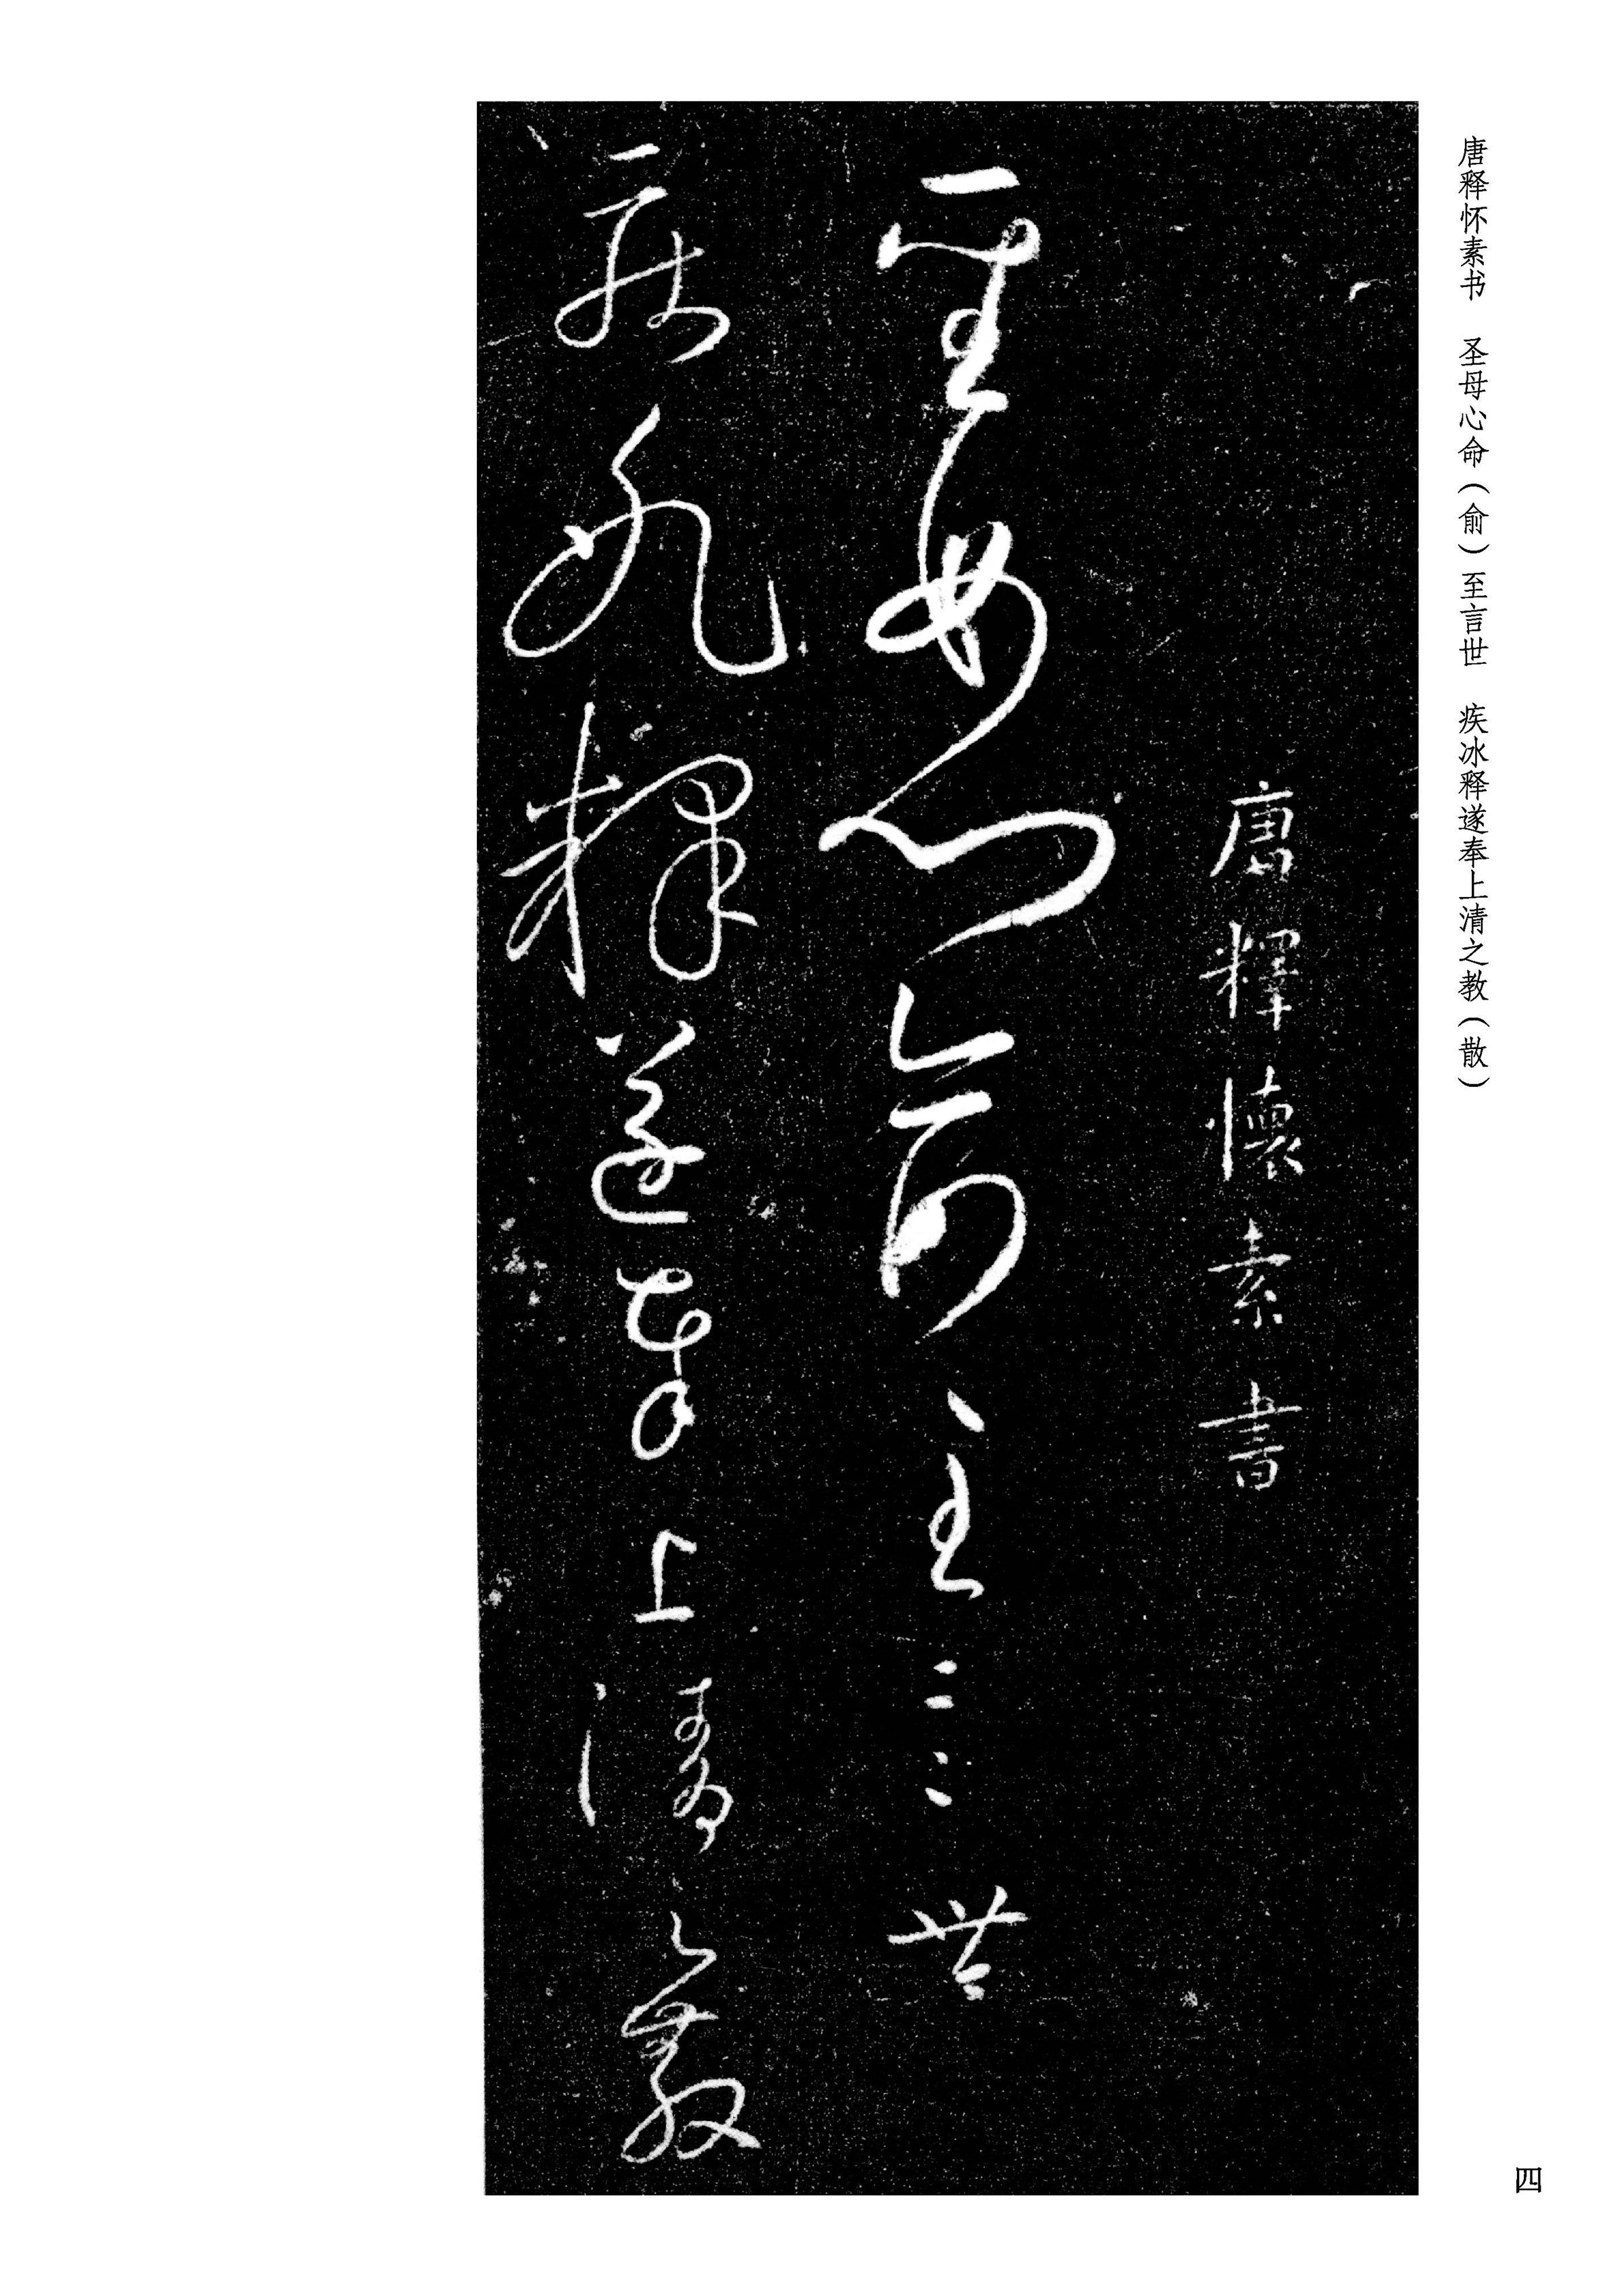 唐释怀素书　圣母心命（俞）至言世　疾冰释遂奉上清之教（散）
唐釋懷素書
聖母心俞至言世
疾冰釋遂奉上清之教
四